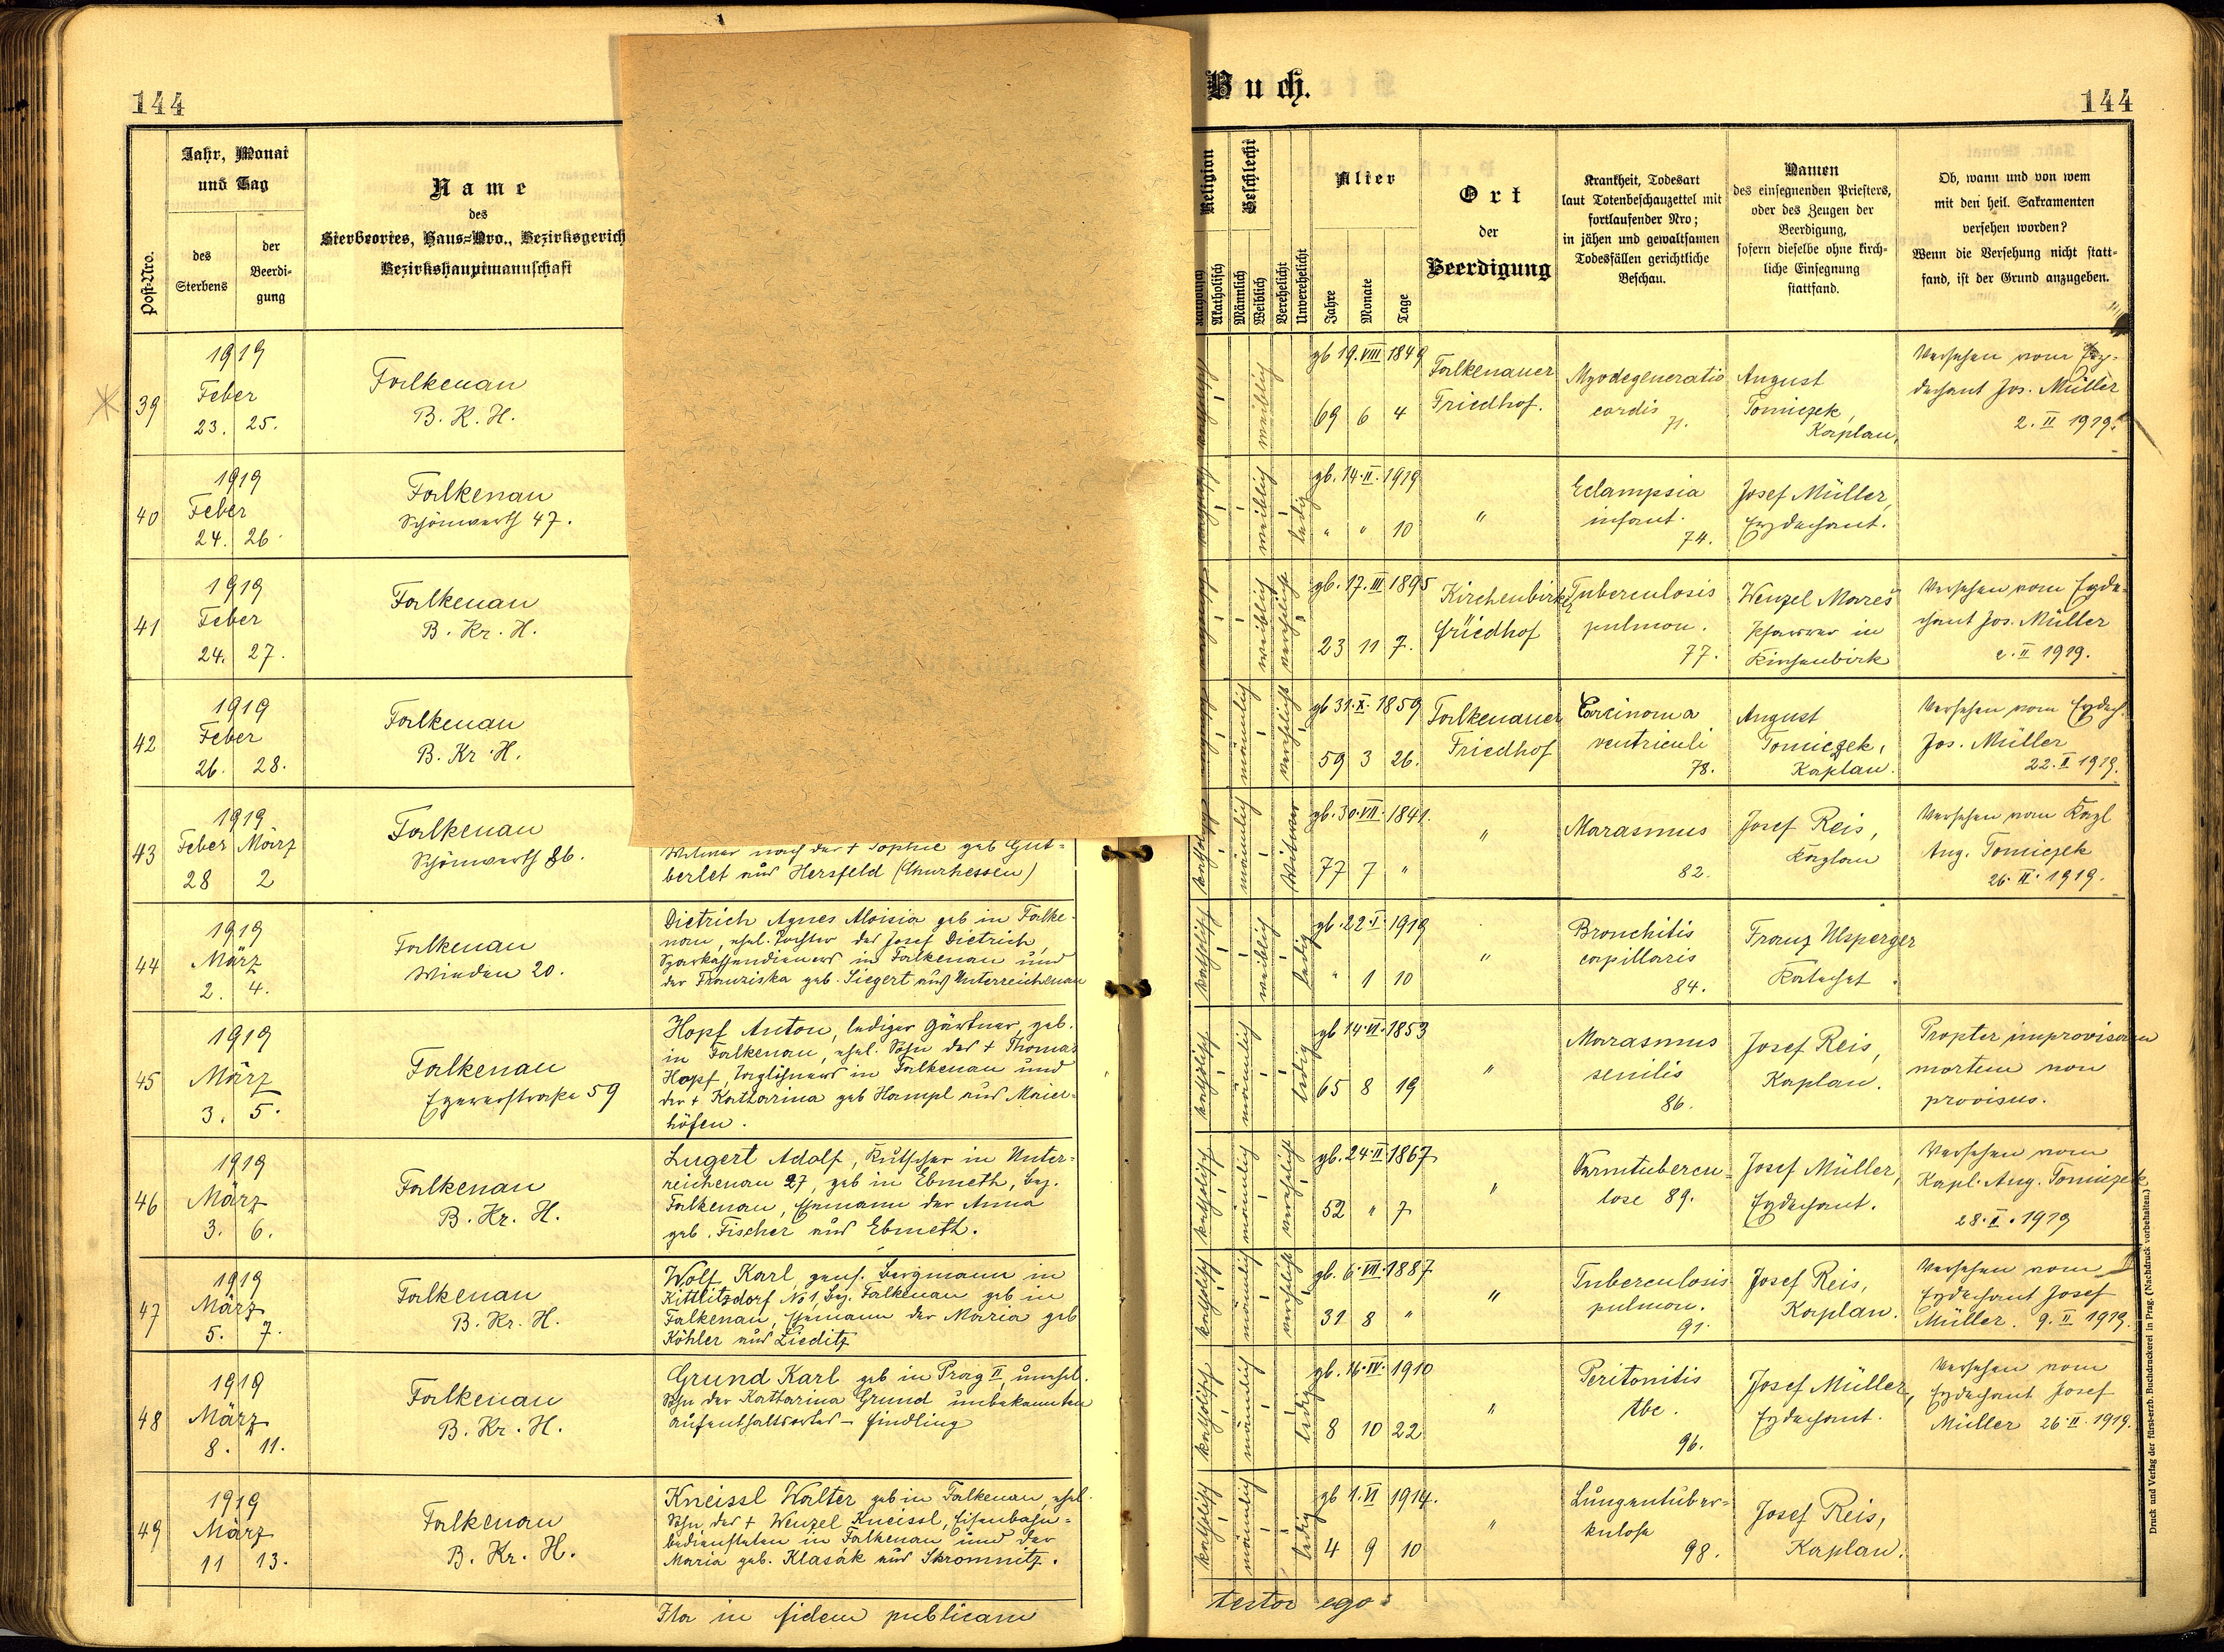 144
Buch.
144
Post-Nro.
Jahr, Monat
und Tag
des
Sterbens
der
Beerdi-
gung
Name
des
Sterbeortes, Haus-Nro., Bezirksgerich
Bezirkshauptmannschaft
Religion
Katholisch
Akatholisch
Geschlecht
Männlich
Weiblich
Verehelicht
Unverehelicht
Alter
Jahre
Monate
Tage
Ort
der
Beerdigung
Krankheit, Todesart
laut Totenbeschauzettel mit
fortlaufender Nro;
in jähen und gewaltsamen
Todesfällen gerichtliche
Beschau.
Namen
des einsegnenden Priesters,
oder des Zeugen der
Beerdigung,
sofern dieselbe ohne kirch-
liche Einsegnung
stattfand.
Ob, wann und von wem
mit den heil. Sakramenten
versehen worden?
Wenn die Versehung nicht statt-
fand, ist der Grund anzugeben.
39
1919
Feber
23. 25.
Falkenau
B. K. H.
weiblich
gb 19. VIII 1849
69 6 4
Falkenauer
Friedhof.
Myodegeneratio
cordis
71.
August
Tomiczek,
Kaplan,
Versehen vom Erz-
dechant Jos. Müller
2. II 1919.
40
1919
Feber
24. 26.
Falkenau
Schönwerth 47.
weiblich
ledig
gb. 14. II. 1919
" " 10
"
Eclampsia
infant.
74.
Josef Müller,
Erzdechant.
41
1919
Feber
24. 27.
Falkenau
B. Kr. H.
weiblich
verehelicht
gb. 17. III 1895
23 11 7.
Kirchenbirk
Friedhof
Tuberculosis
pulmon.
77.
Wenzel Mareš
Pfarrer in
Kirchenbirk
Versehen vom Erzde-
chant Jos. Müller
2. II 1919.
42
1919
Feber
26. 28.
Falkenau
B. Kr. H.
männlich
verehelicht
gb 31. X. 1859
59 3 26.
Falkenauer
Friedhof
Carcinoma
ventriculi
78.
August
Tomiczek,
Kaplan.
Versehen vom Erzdech.
Jos. Müller
22. II 1919.
43
1919
Feber März
28 2
Falkenau
Schönwerth 86.
Witwer nach der † Sophie geb Gut-
berlet aus Hersfeld (Churhessen)
männlich
Witwer
gb. 30. VII. 1841.
77 7 "
"
Marasmus
82.
Josef Reis,
Kaplan
Versehen vom Kapl
Aug. Tomiczek
26. II. 1919.
44
1919
März
2. 4.
Falkenau
Winden 20.
Dietrich Agnes Aloisia geb in Falke-
nau, ehel. Tochter des Josef Dietrich,
Sparkassendieners in Falkenau und
der Franziska geb. Siegert aus Unterreichenau
katholisch
weiblich
ledig
gb. 22. I. 1919
" 1 10
"
Bronchitis
capillaris
84.
Franz Ulsperger
Katechet.
45
1919
März
3. 5.
Falkenau
Egererstraße 59
Hopf Anton, lediger Gärtner, geb.
in Falkenau, ehel. Sohn des † Thomas
Hopf, Taglöhners in Falkenau und
der † Katharina geb Hampl aus Maier-
höfen.
katholisch
männlich
ledig
gb 14. VI. 1853
65 8 19
"
Marasmus
senilis
86.
Josef Reis,
Kaplan.
Propter improvisam
mortem non
provisus.
46
1919
März
3. 6.
Falkenau
B. Kr. H.
Lugert Adolf, Kutscher in Unter-
reichenau 27, geb in Ebmeth, Bez.
Falkenau, Ehemann der Anna
geb. Fischer aus Ebmeth.
katholisch
männlich
verehelicht
gb. 24. II 1867
52 " 7
"
Darmtubercu-
lose 89.
Josef Müller,
Erzdechant.
Versehen vom
Kapl. Aug. Tomiczek
28. I. 1919
47
1919
März
5. 7.
Falkenau
B. Kr. H.
Wolf Karl, gews. Bergmann in
Kittlitzdorf No 1, Bez. Falkenau geb in
Falkenau, Ehemann der Maria geb
Köhler aus Lieditz
katholisch
männlich
verehelicht
gb. 6. VII. 1887
31 8 "
"
Tuberculosis
pulmon.
91.
Josef Reis,
Kaplan.
Versehen vom
Erzdechant Josef
Müller. 9. II 1919.
48
1919
März
8. 11.
Falkenau
B. Kr. H.
Grund Karl geb in Prag II, unehel.
Sohn der Katharina Grund unbekannten
Aufenthaltsortes – Findling
katholisch
männlich
ledig
gb. 16. IV. 1910
8 10 22
"
Peritonitis
tbc.
96.
Josef Müller,
Erzdechant.
Versehen vom
Erzdechant Josef
Müller 26. II. 1919.
49
1919
März
11 13.
Falkenau
B. Kr. H.
Kneissl Walter geb in Falkenau, ehel.
Sohn des † Wenzel Kneissl, Eisenbahn-
bediensteten in Falkenau und der
Maria geb. Klasák aus Skromnitz.
katholisch
männlich
ledig
gb 1. VI 1914.
4 9 10
"
Lungentuber-
kulose
98.
Josef Reis,
Kaplan.
Ita in fidem publicam testor ego:
Druck und Verlag der fürst-erzb. Buchdruckerei in Prag. (Nachdruck vorbehalten.)